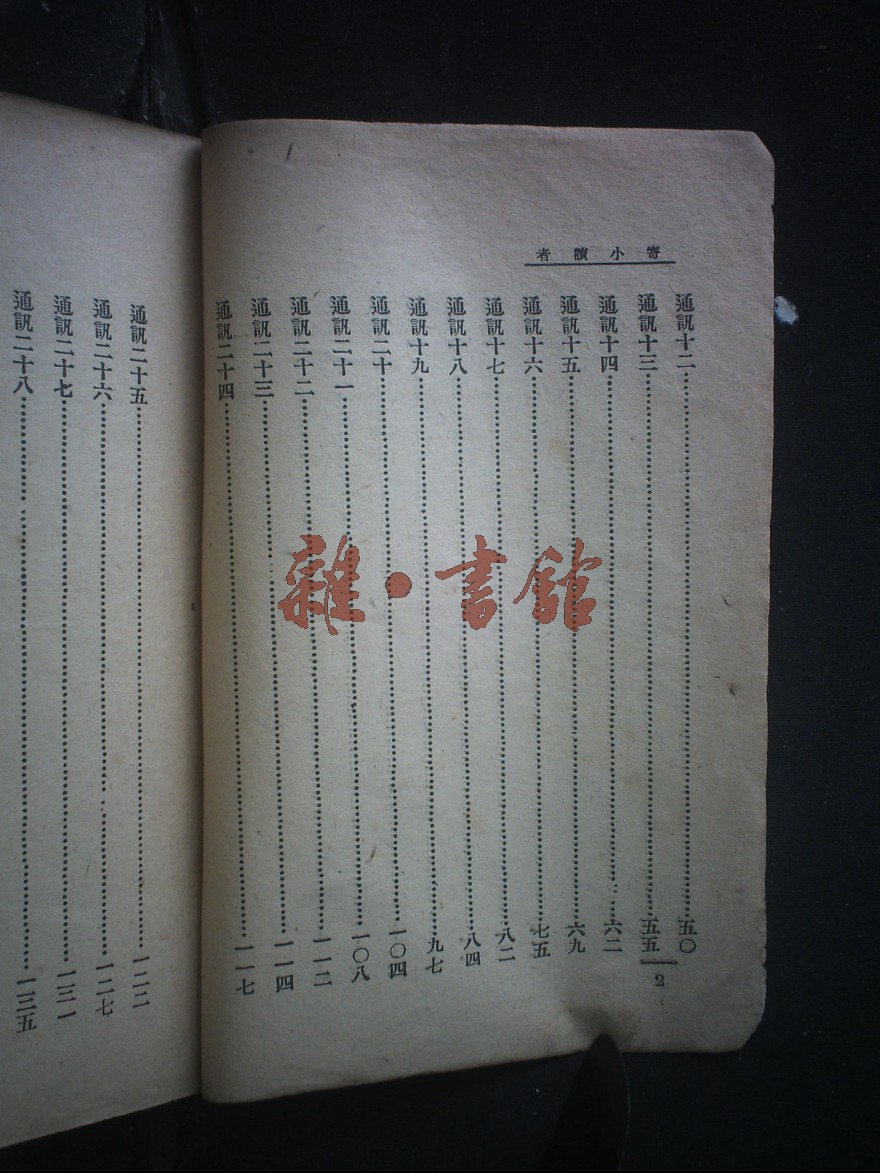 寄小讀者
通訊十二……五〇
通訊十三……五五
通訊十四……六二
通訊十五……六九
通訊十六……七五
通訊十七……八二
通訊十八……八四
通訊十九……九七
通訊二十……一〇四
通訊二十一……一〇八
通訊二十二……一一二
通訊二十三……一一四
通訊二十四……一一七
2
通訊二十五……一二二
通訊二十六……一二七
通訊二十七……一三一
通訊二十八……一三五
雜·書館